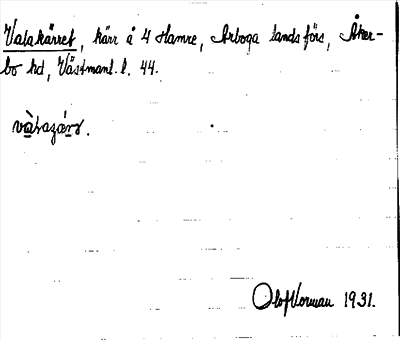 Valakärret, kärr å 4 Hamre, Arboga landsförs, Åker-
bo hd, Västmanl. l. 44.
Olof Vorman 1931.